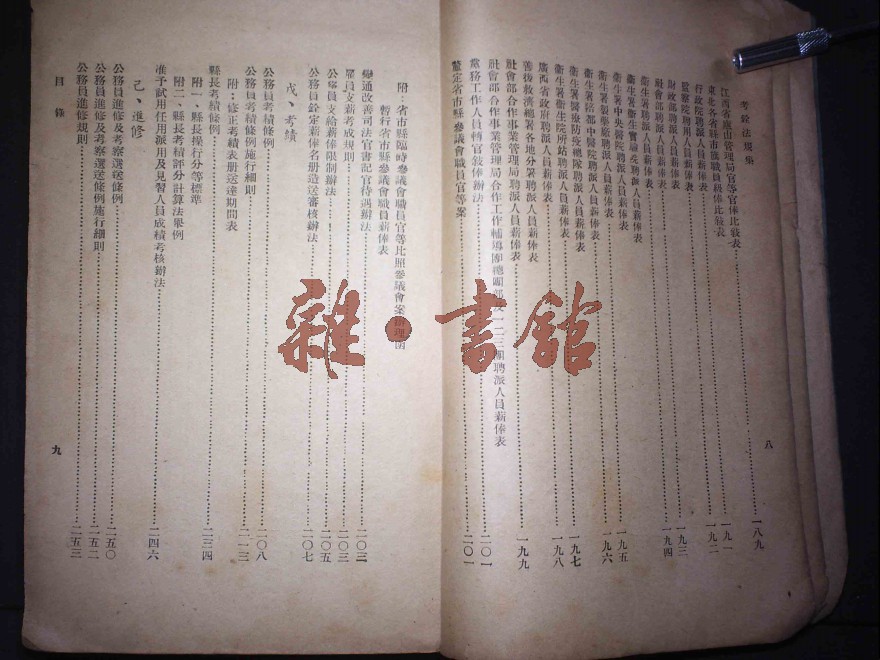 考銓法規集
江西省廬山管理局官等官俸比敍表……一八九
東北各省縣市旗職員級俸比敍表……一九一
行政院聘派人員薪俸表……一九二
監察院聘用人員薪俸表……一九三
財政部聘派人員薪俸表
社會部聘派人員薪俸表……一九四
衞生署聘派人員薪俸表
衞生署衞生實驗院聘派人員薪俸表
衞生署中央醫院聘派人員薪俸表……一九五
衞生署製藥廠聘派人員薪俸表……一九六
衞生署陪都中醫院聘派人員薪俸表
衞生署醫療防疫總隊聘派人員薪俸表……一九七
衞生署衞生院所站聘派人員薪俸表……一九八
廣西省政府聘派人員薪俸表
善後救濟總署各地分署聘派人員薪俸表
社會部合作事業管理局聘派人員薪俸表……一九九
社會部合作事業管理局合作工作輔導團總團部及一二三團聘派人員薪俸表
黨務工作人員轉官敍俸辦法……二〇一
釐定省市縣參議會職員官等案……二〇一
八
附：省市縣臨時參議會職員官等比照參議會案辦理函
暫行省市縣參議會職員薪俸表
變通改善司法官書記官待遇辦法……二〇三
雇員支薪考成規則……二〇三
公務員支給薪俸限制辦法……二〇五
公務員銓定薪俸名册造送審核辦法……二〇七
戊、考績
公務員考績條例……二〇八
公務員考績條例施行細則……二一三
附：修正考績表册送達期間表
縣長考績條例……二三四
附一、縣長操行分等標準
附二、縣長考績評分計算法舉例
准予試用任用派用及見習人員成績考核辦法……二四六
己、進修
公務員進修及考察選送條例……二五〇
公務員進修及考察選送條例施行細則……二五二
公務員進修規則……二五三
目錄
九
雜·書館